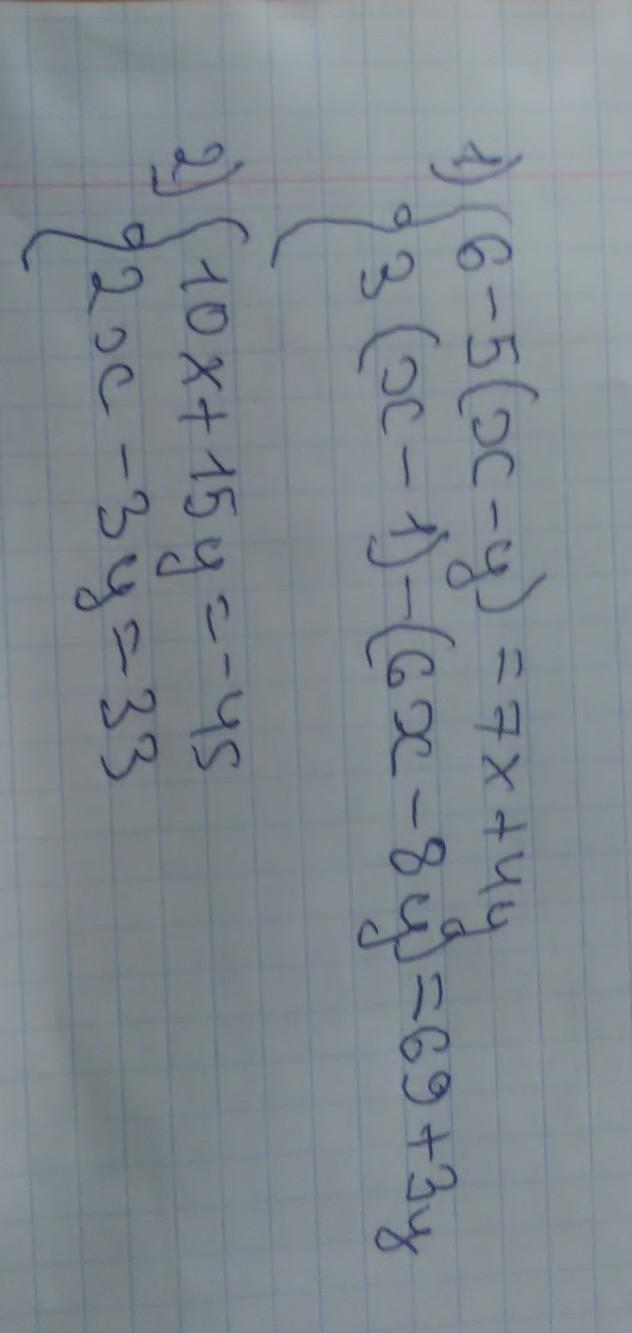 1) { 6-5(x-y) = 7x+4y
3(x-1)-(6x-8y)=69+3y
2) { 10x+15y=-45
2x-3y=33